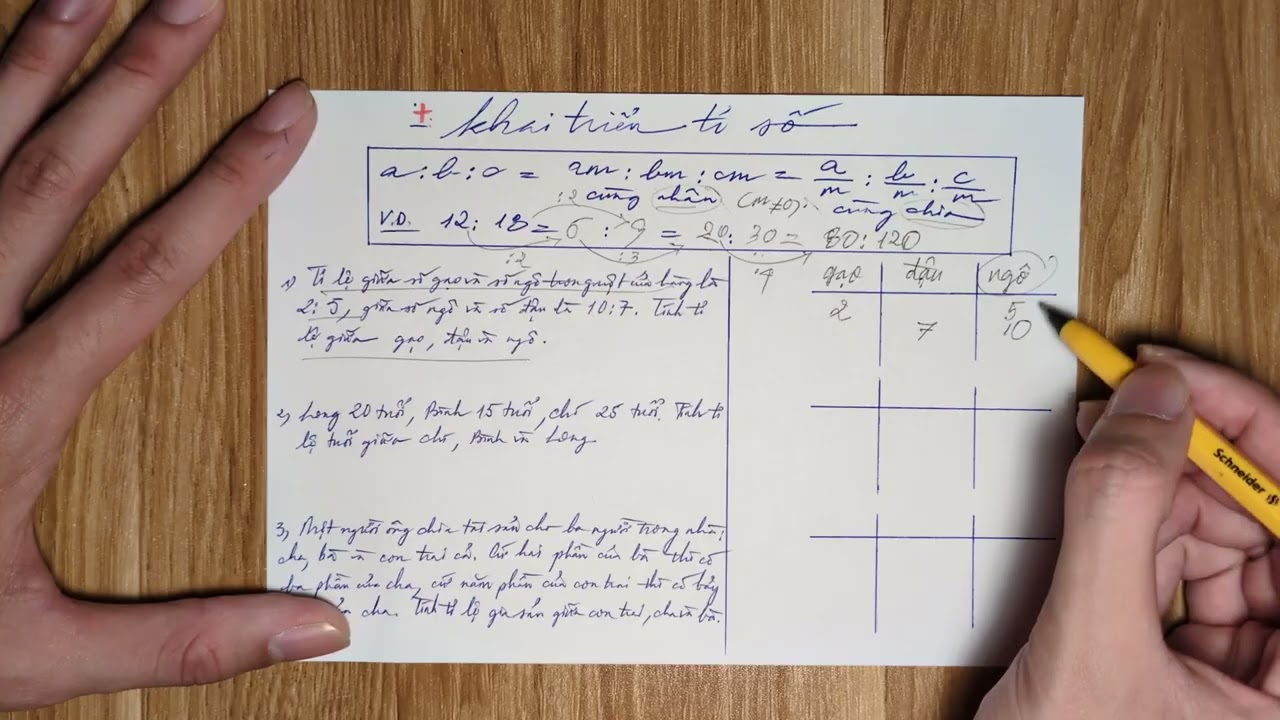 ± khai triển tỉ số
a : b : c = am : bm : cm = a/m : b/m : c/m
:2 cùng nhân (m≠0) cùng chia
V.D. 12 : 18 = 6 : 9 = 20 : 30 = 80 : 120
:2 :3
1) Tỉ lệ giữa số gạo và số ngô trong một cửa hàng là
2 : 5, giữa số ngô và số đậu là 10 : 7. Tính tỉ
lệ giữa gạo, đậu và ngô.
2) Long 20 tuổi, Bình 15 tuổi, chó 25 tuổi. Tính tỉ
lệ tuổi giữa chó, Bình và Long
3) Một người ông chia tài sản cho ba người trong nhà:
cha, bà và con trai cả. Cứ hai phần của bà thì có
ba phần của cha, cứ năm phần của con trai thì có bảy
cha. Tính tỉ lệ gia sản giữa con trai, cha và bà.
4 gạo đậu ngô
2 5
7 10
Schneider